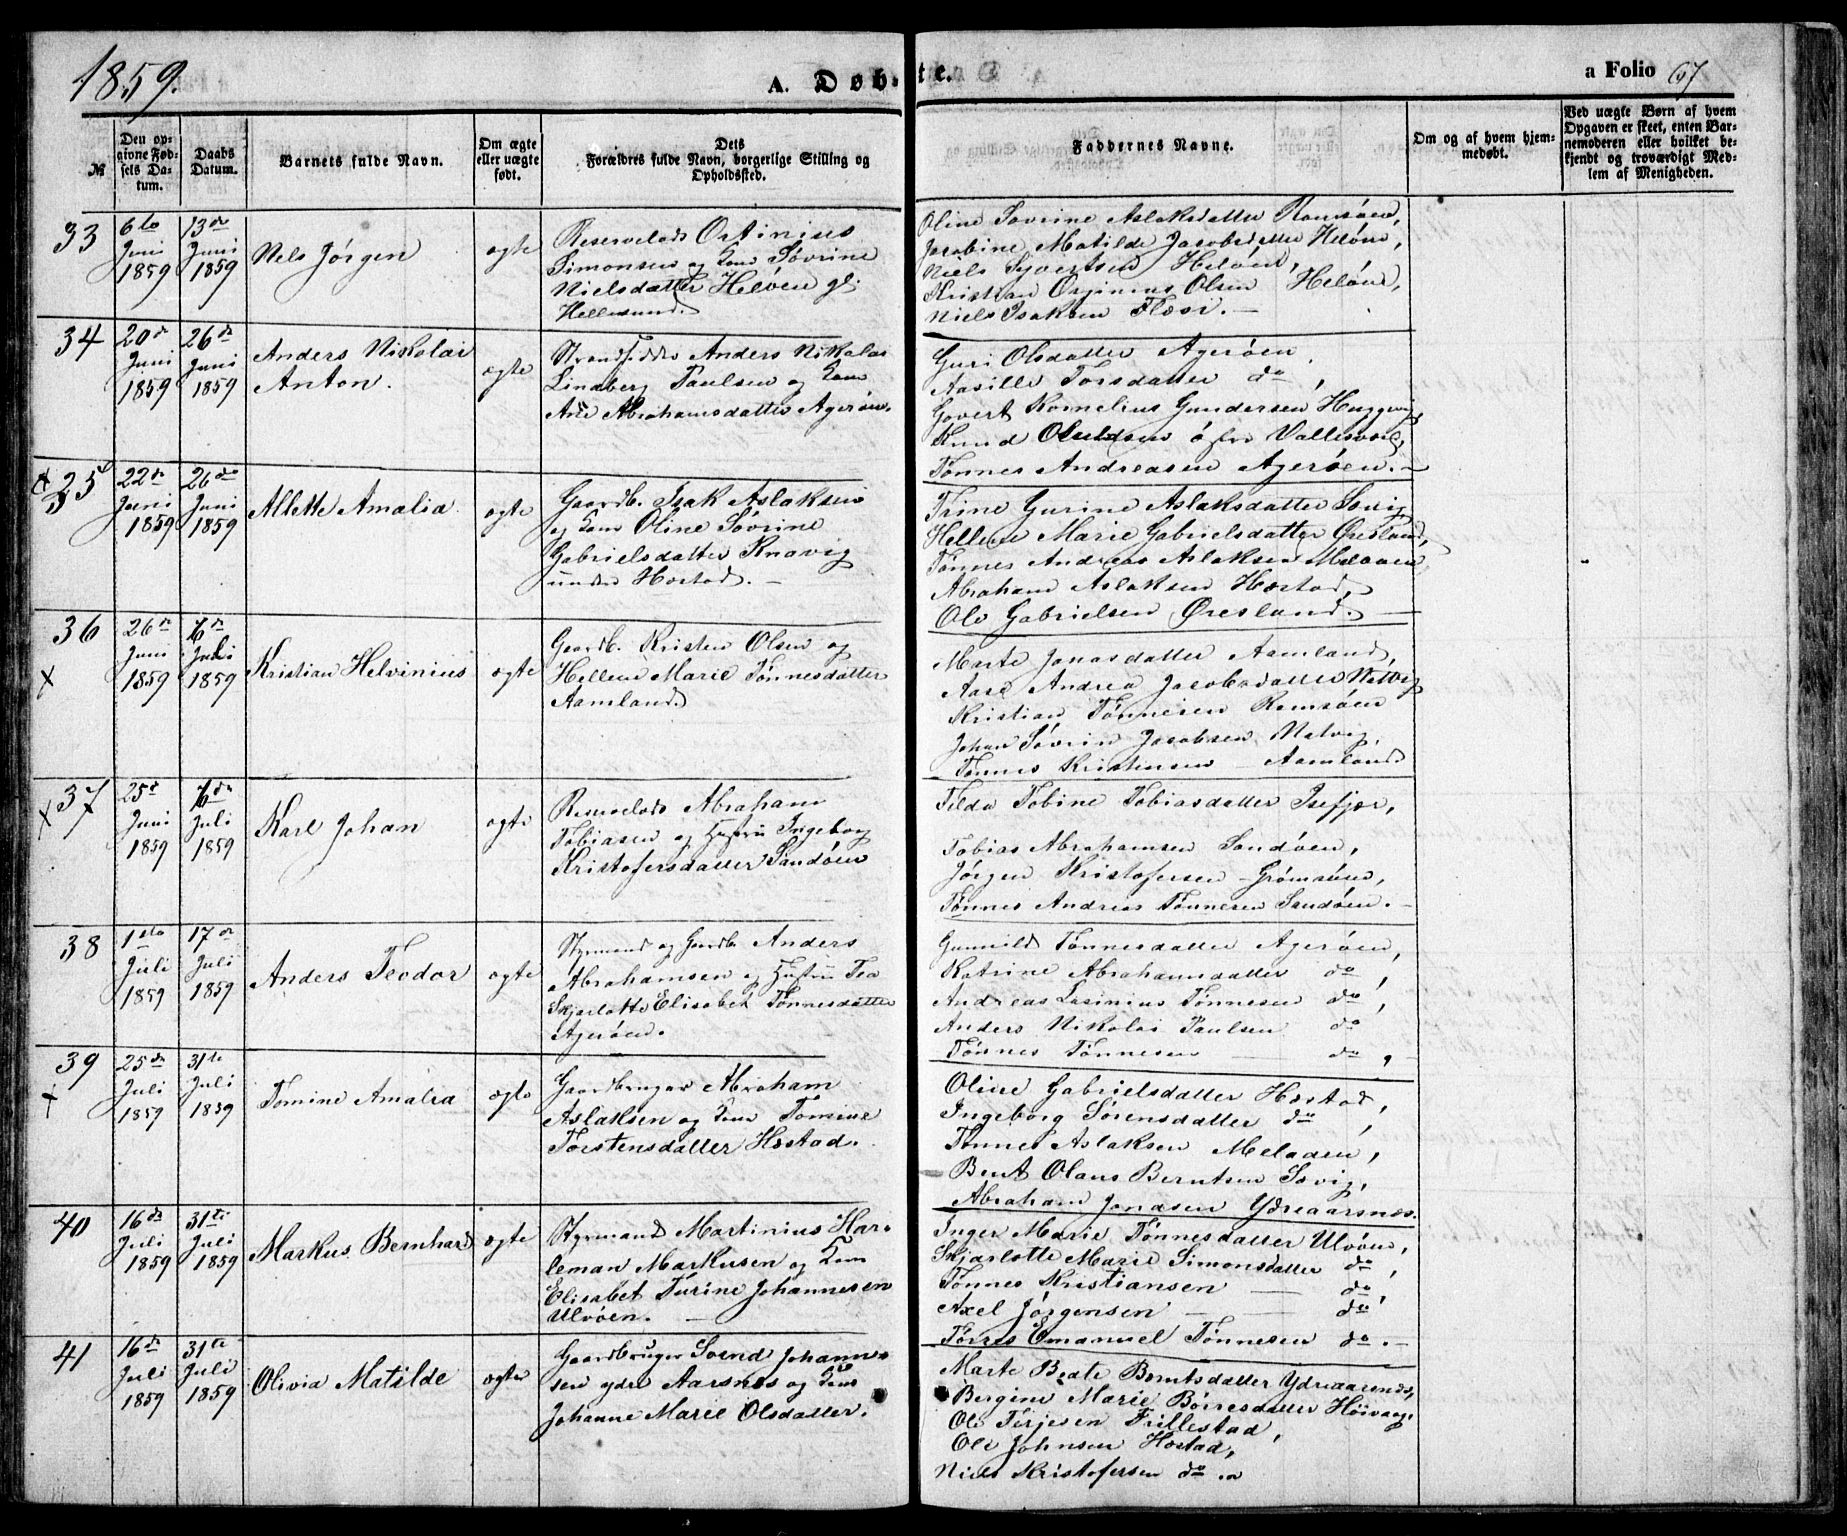 1859.
A. Døbte.
a Folio 67
№
Den opgivne Fødsels Datum.
Daabs Datum.
Barnets fulde Navn.
Om ægte eller uægte født.
Dets Forældres fulde Navn, borgerlige Stilling og Opholdssted.
Faddernes Navne.
Om og af hvem hjemmedøbt.
Ved uægte Børn af hvem Opgaven er skeet, enten Barnemoderen eller hvilket bekjendt og troværdigt Medlem af Menigheden.
33
6te Juni 1859
13de Juni 1859
Nils Jørgen
ægte
Reservelods Ostinius
Simonsen og Kone Sovrine
Nielsdatter Heløen gl:
Hellesund.
Oline Sovrine Aslaksdatter Ramsøen,
Jacobine Matilde Jacobsdatter Heløen,
Niels Syvertsen Heløen,
Kristian Olsen Heløen,
Niels Isaksen
34
20de Juni 1859
26de Juni 1859
Anders Nikolai
Anton.
ægte
Strandsidder Anders Nikolai
Lindberg Paulsen og Kone
Ane Abrahamsdatter Agerøen.
Guri Olsdatter Agerøen
Aasille Torsdatter do,
Govert Kornelius Gundersen
Knud Vallesverd,
Tønnes Andreasen Agerøen.
35
22de Juni 1859
26de Juni 1859
Allette Amalia
ægte
Gaardb. Isak Aslaksen
og Kone Oline Sovrine
Gabrielsdatter Knavig
under Hæstad.
Trine Gurine Aslaksdatter
Hellene Marie Gabrielsdatter Øresland,
Tønnes Andreas Aslaksen
Abraham Aslaksen Hæstad,
Ole Gabrielsen Øresland.
36
26de Juni 1859
Juli 1859
Kristian Helvinius
ægte
Gaardb. Kristen Olsen og
Hellene Marie Tønnesdatter
Aamland
Marte Jonasdatter Aamland,
Aase Andrea Jacobsdatter Natvig
Kristian Tønnesen Ramsøen
Johan Sovrin Jacobsen Natvig,
Tønnes Kristensen Aamland
37
25de Juni 1859
Juli 1859
Karl Johan
ægte
Reservelods Abraham
Tobiasen og Hustru Ingeborg
Kristofersdatter Sandøen
Tilda Tobine Tobiasdatter Isefjær,
Tobias Abrahamsen Sandøen,
Jørgen Kristofersen
Tønnes Andreas Tønnesen Sandøen.
38
1ste Juli 1859
17de Juli 1859
Anders Teodor
ægte
Styrmand og Gaardb. Anders
Abrahamsen og Hustru Tea
Skjarlotte Elisabet Tønnesdatter
Agerøen.
Gunnild Tønnesdatter Agerøen,
Katrine Abrahamsdatter do,
Andreas Tønnesen do,
Anders Nikolai Paulsen do
Tønnes Tønnesen do,
39
25de Juli 1859
31te Juli 1859
Tomine Amalia
ægte
Gaardbruger Abraham
Aslaksen og Kone Tomine
Torstensdatter Hæstad.
Oline Gabrielsdatter Hæstad,
Ingeborg Sørensdatter do,
Tønnes Aslaksen
Bent Olaus Berntsen
Abraham Jonasen Ydreaarsnes.
40
16de Juli 1859
31te Juli 1859
Markus Bernhard
ægte
Styrmand Martinius Har-
leman Markusen og Kone
Elisabet Turine Johannesen
Ulvøen.
Inger Marie Tønnesdatter Ulvøen,
Skjarlotte Marie Simonsdatter do,
Tønnes Kristiansen do,
Axel Jørgensen do
Torres Emanuel Tønnesen do.
41
16de Juli 1859
31te Juli 1859
Olivia Matilde
ægte
Gaardbruger Svend Johann-
sen ydre Aarsnes og Kone
Johanne Marie Olsdatter.
Marte Beate Berntsdatter Ydreaarsnes,
Bergine Marie Børresdatter Høivaag,
Ole Terjesen Trillestad,
Ole Johnsen Hæstad,
Niels Kristofersen do.